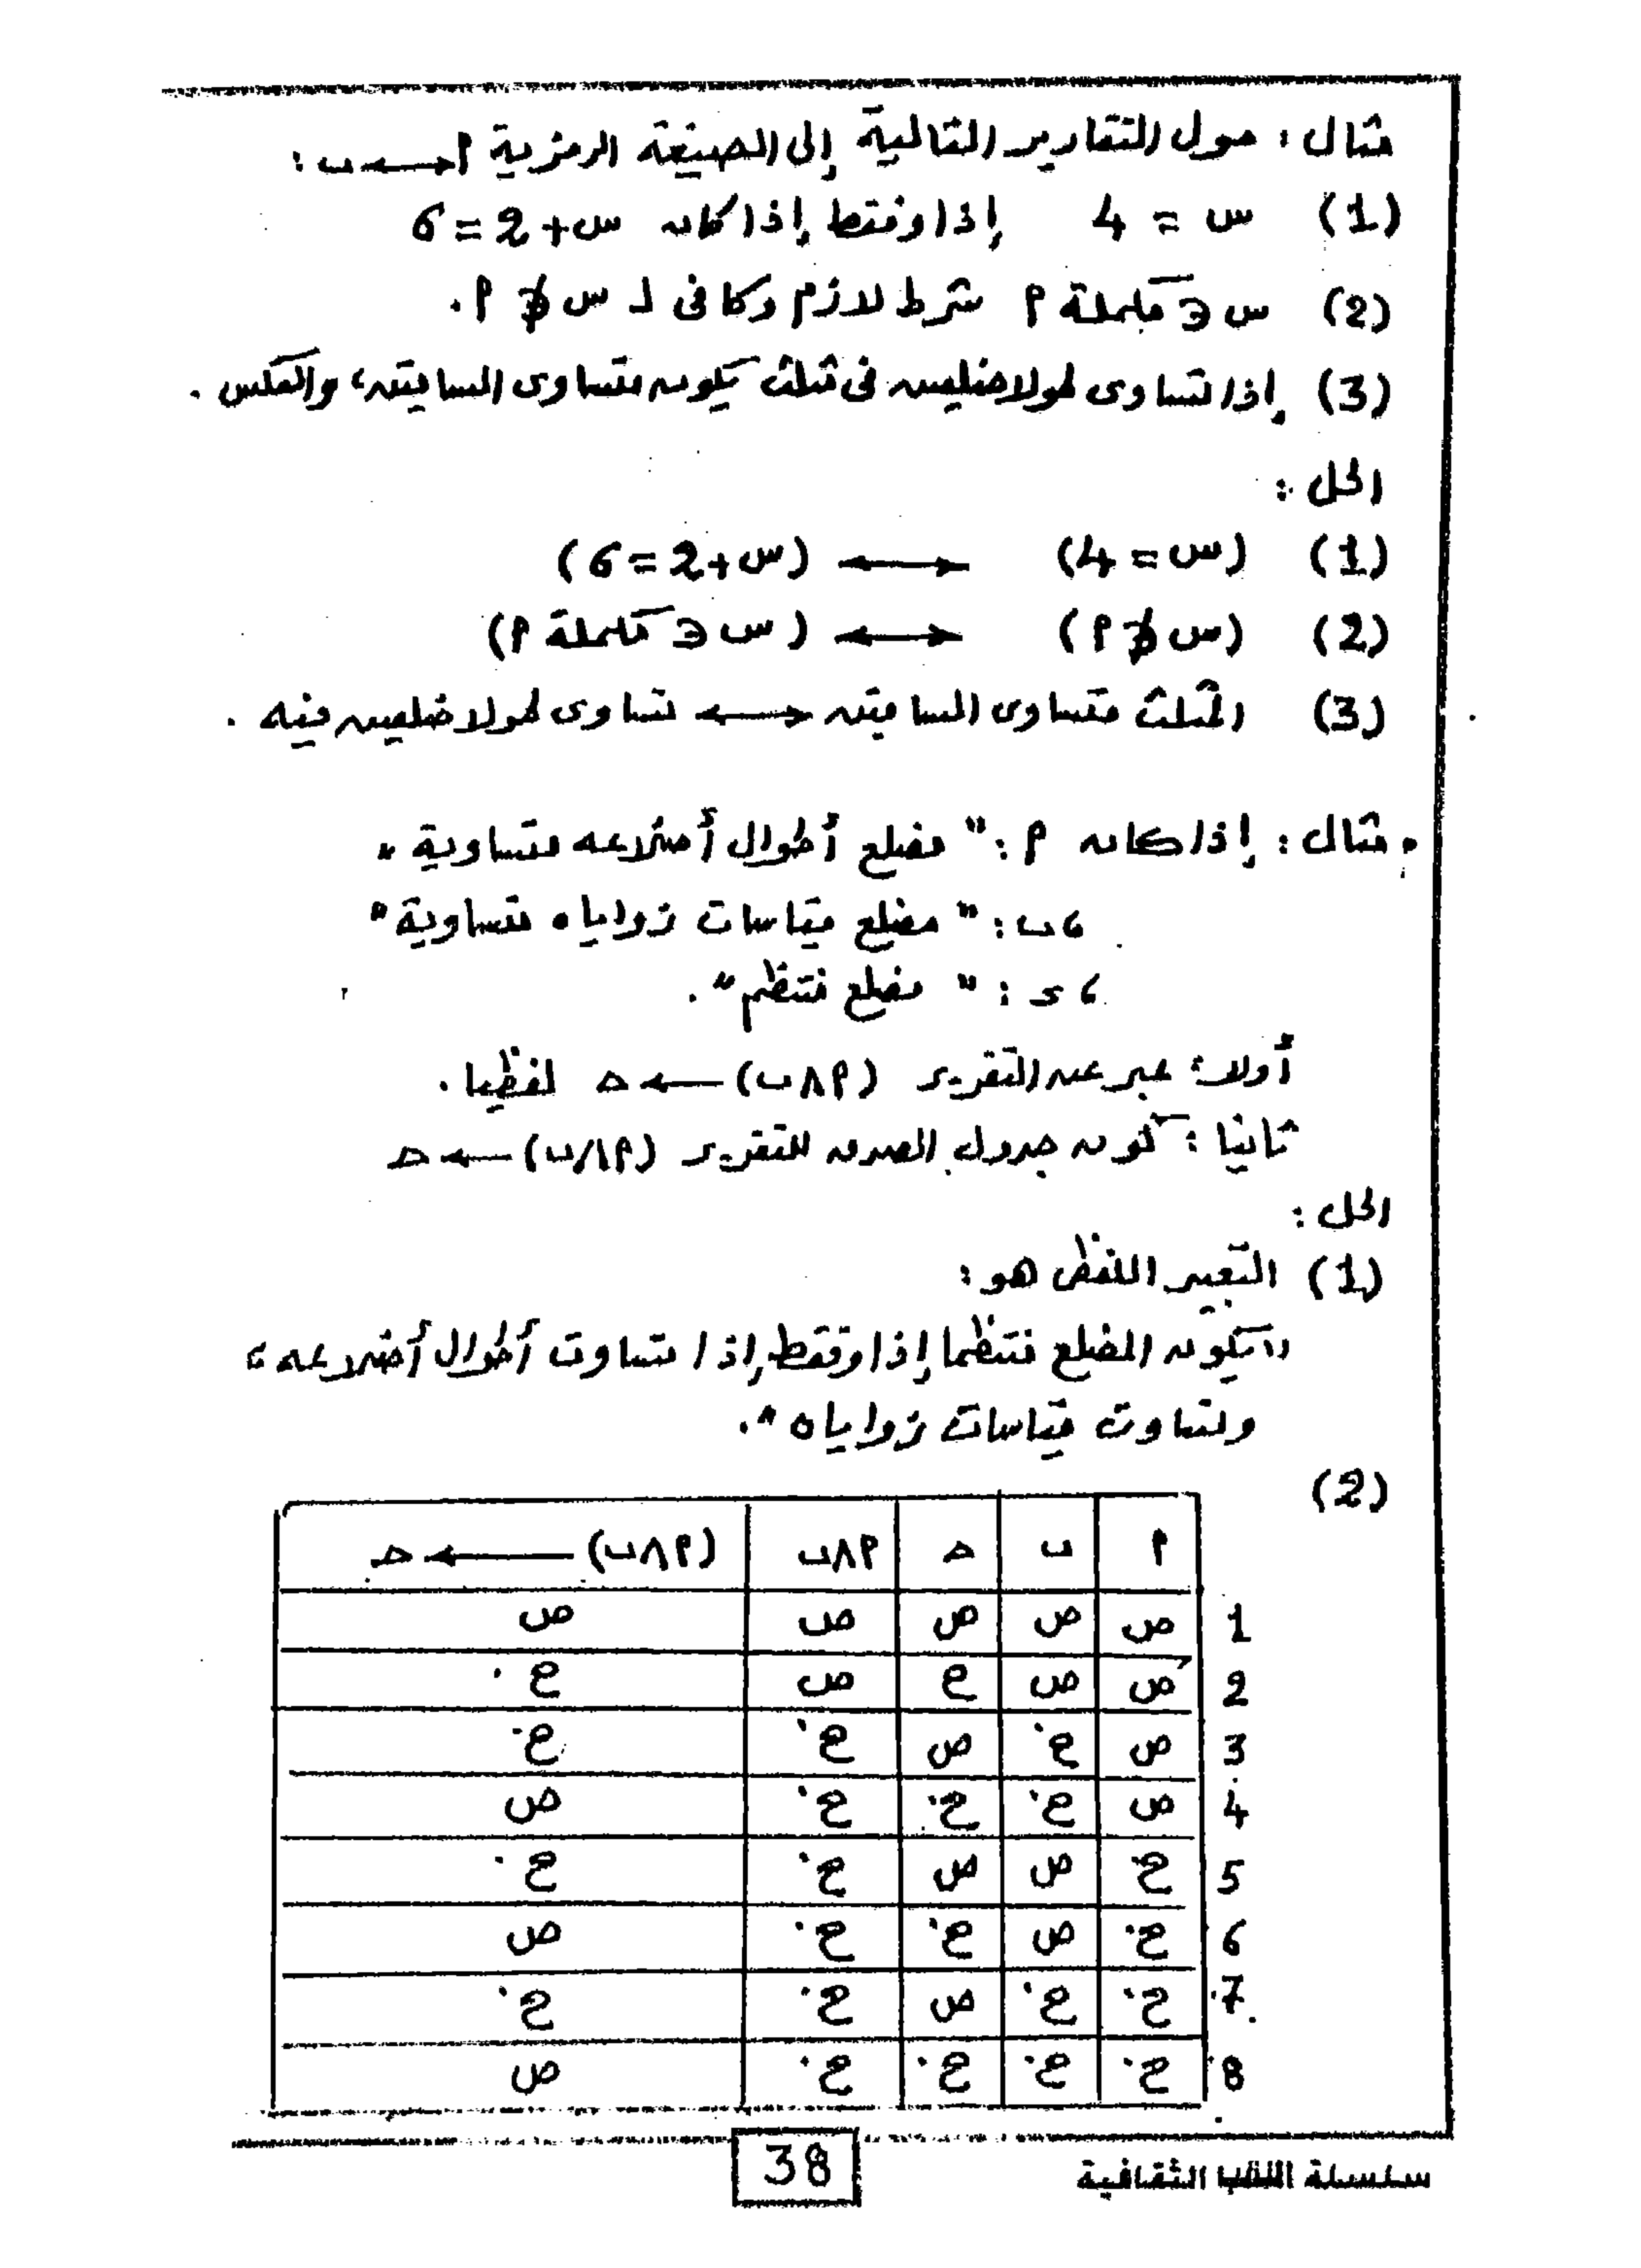 مثال : حول التقارير التالية إلى الصيغة الرمزية P ⟷ ب :
(1) س = 4 إذا وفقط إذا كان س + 2 = 6
(2) س ∈ مكملة P شرط لازم وكافى لـ س ∉ P .
(3) إذا تساوى طولا ضلعين فى مثلث يكون متساوى الساقين، والعكس .
الحل :
(1) (س = 4) ⟷ (س + 2 = 6)
(2) (س ∉ P) ⟷ (س ∈ مكملة P)
(3) المثلث متساوى الساقين ⟷ تساوى طولا ضلعين فيه .
• مثال : إذا كان P : " مضلع أطوال أضلاعه متساوية "
، ب : " مضلع قياسات زواياه متساوية "
، ح : " مضلع منتظم " .
أولا : عبر عن التقرير (P ∧ ب) ⟵ ح لفظيا .
ثانيا : كون جدول الصدق للتقرير (P ∧ ب) ⟵ ح
الحل :
(1) التعبير اللفظى هو :
" يكون المضلع منتظما إذا وفقط إذا تساوت أطوال أضلاعه ،
وتساوت قياسات زواياه " .
(2)
P ب ح P ∧ ب (P ∧ ب) ⟵ ح
1 ص ص ص ص ص
2 ص ص خ ص خ
3 ص خ ص خ خ
4 ص خ خ خ ص
5 خ ص ص خ خ
6 خ ص خ خ ص
7 خ خ ص خ خ
8 خ خ خ خ ص
38
سلسلة الثقافية